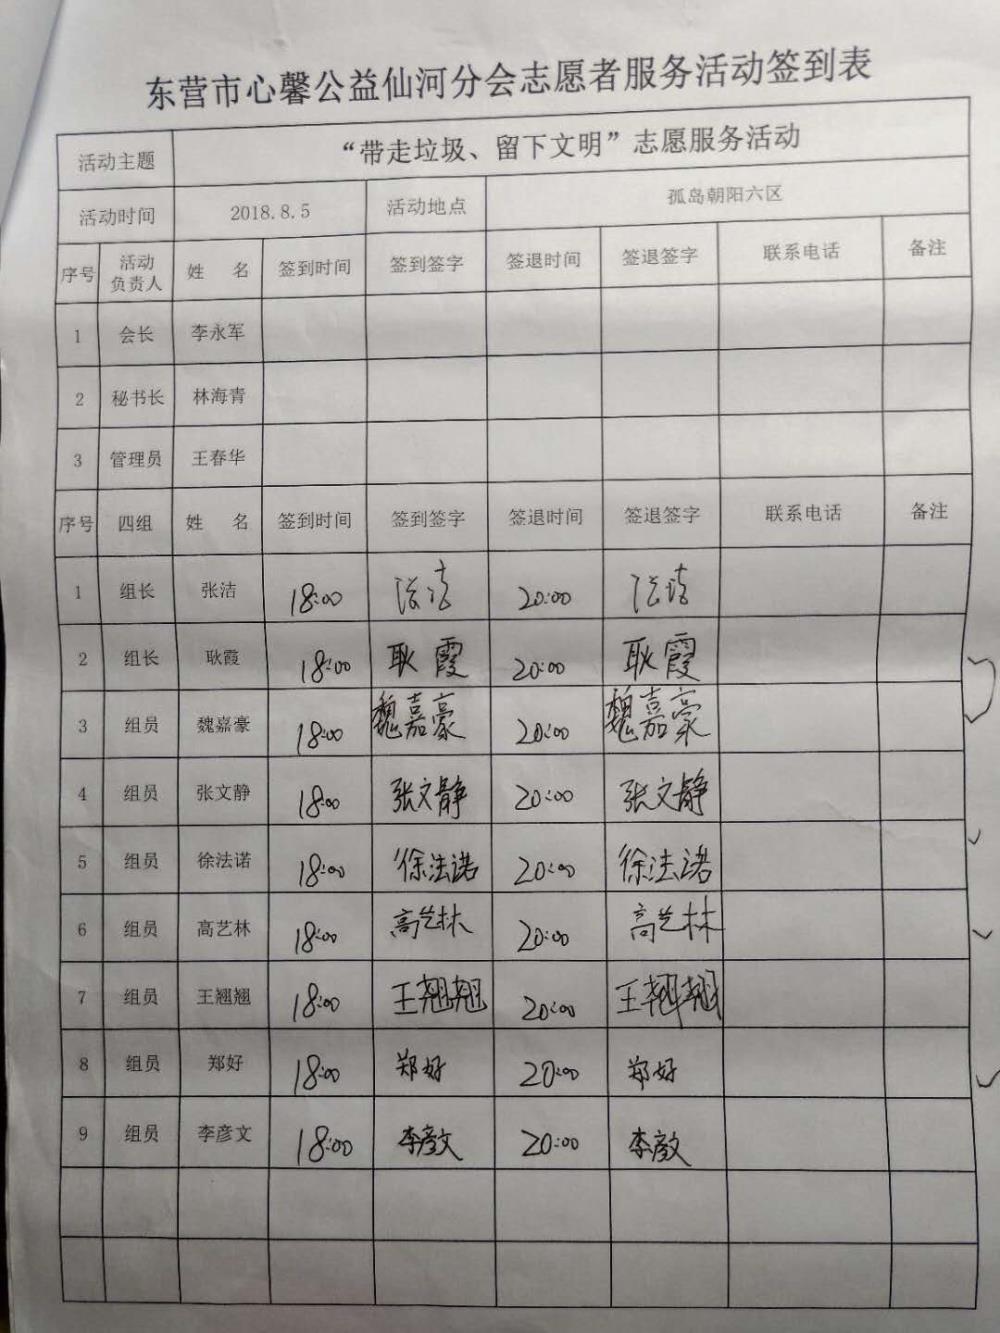 东营市心馨公益仙河分会志愿者服务活动签到表
活动主题 “带走垃圾、留下文明”志愿服务活动
活动时间 2018.8.5 活动地点 孤岛朝阳六区
序号 活动负责人 姓 名 签到时间 签到签字 签退时间 签退签字 联系电话 备注
1 会长 李永军
2 秘书长 林海青
3 管理员 王春华
序号 四组 姓 名 签到时间 签到签字 签退时间 签退签字 联系电话 备注
1 组长 张洁 18:00 张洁 20:00 张洁
2 组长 耿霞 18:00 耿霞 20:00 耿霞
3 组员 魏嘉豪 18:00 魏嘉豪 20:00 魏嘉豪
4 组员 张文静 18:00 张文静 20:00 张文静
5 组员 徐法诺 18:00 徐法诺 20:00 徐法诺
6 组员 高艺林 18:00 高艺林 20:00 高艺林
7 组员 王翘翘 18:00 王翘翘 20:00 王翘翘
8 组员 郑好 18:00 郑好 20:00 郑好
9 组员 李彦文 18:00 李彦文 20:00 李彦文